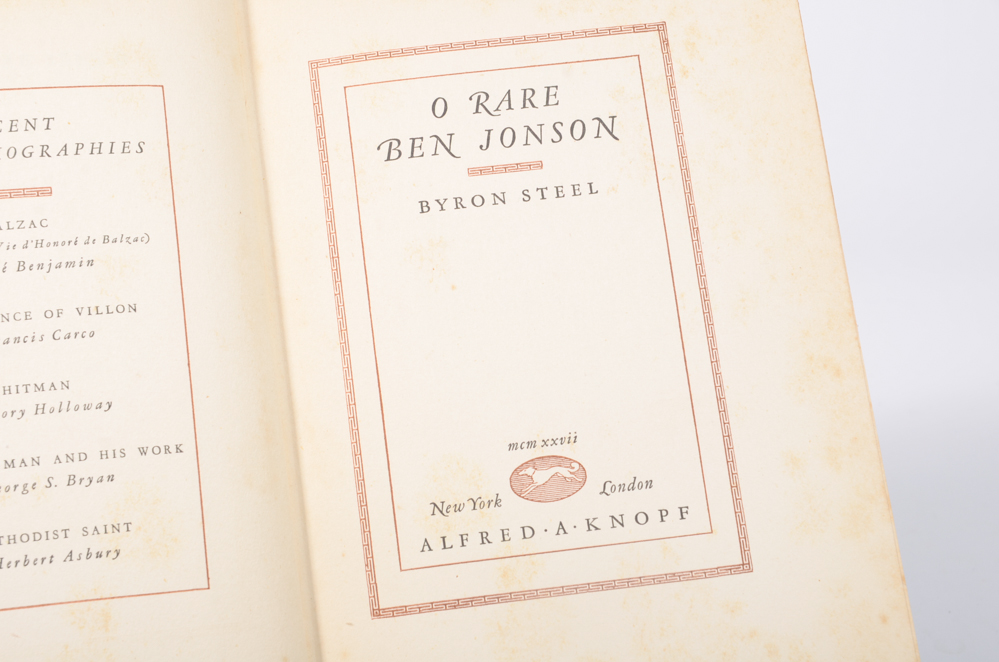 CENT
IOGRAPHIES
ALZAC
Vie d'Honoré de Balzac)
é Benjamin
NCE OF VILLON
ancis Carco
HITMAN
ory Holloway
MAN AND HIS WORK
eorge S. Bryan
THODIST SAINT
Herbert Asbury
O RARE
BEN JONSON
BYRON STEEL
mcmxxvii
New York London
ALFRED·A·KNOPF